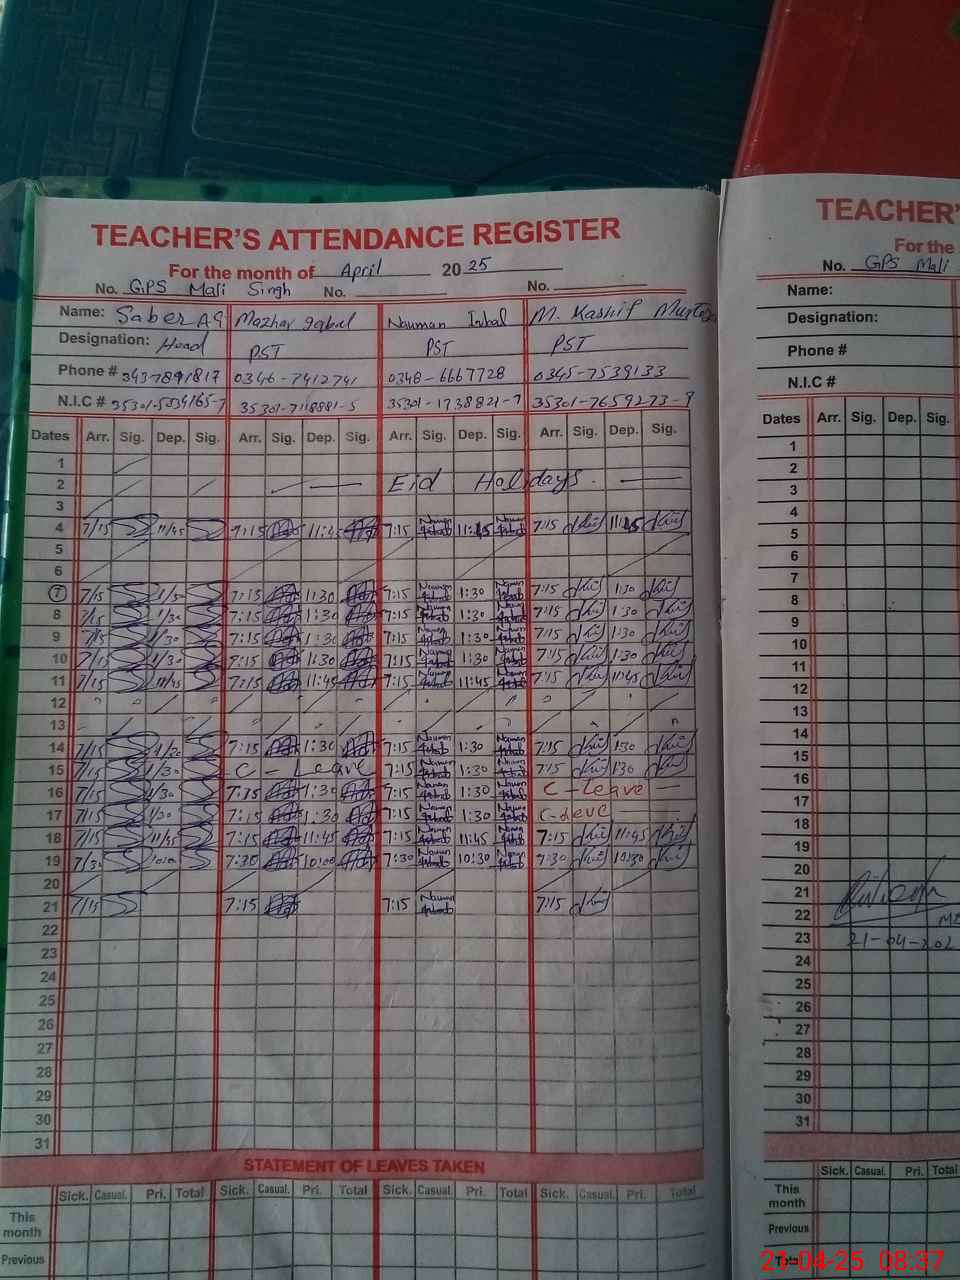 TEACHER'S ATTENDANCE REGISTER
For the month of April 2025
No. GPS Mali Singh No. No.
Name: Saber Mazhar Iqbal Nauman Iqbal M. Kashif
Designation: Head PST PST PST
Phone # 0346-7412741 0348-6667728 0345-7539133
N.I.C # 35301-1738821-7 35301-7659273-9
Dates Arr. Sig. Dep. Sig. Arr. Sig. Dep. Sig. Arr. Sig. Dep. Sig. Arr. Sig. Dep. Sig.
1
2 Eid Holidays.
3
4 7/15 11/45 7:15 11:45 7:15 Nauman Iqbal 11:45 Nauman Iqbal 7:15 11:45
5
6
7 7/15 1/30 7:15 1:30 7:15 Nauman Iqbal 1:30 Nauman Iqbal 7:15 1:30
8 7/15 1/30 7:15 1:30 7:15 Nauman Iqbal 1:30 Nauman Iqbal 7:15 1:30
9 7/15 1/30 7:15 1:30 7:15 Nauman Iqbal 1:30 Nauman Iqbal 7:15 1:30
10 7/15 1/30 7:15 1:30 7:15 Nauman Iqbal 1:30 Nauman Iqbal 7:15 1:30
11 7/15 11/45 7:15 11:45 7:15 Nauman Iqbal 11:45 Nauman Iqbal 7:15 11:45
12
13
14 7/15 1/30 7:15 1:30 7:15 Nauman Iqbal 1:30 Nauman Iqbal 7:15 1:30
15 7/15 1/30 C - Leave 7:15 Nauman Iqbal 1:30 Nauman Iqbal 7:15 1:30
16 7/15 1/30 7:35 1:30 7:15 Nauman Iqbal 1:30 Nauman Iqbal C - Leave
17 7/15 1/30 7:15 1:30 7:15 Nauman Iqbal 1:30 Nauman Iqbal C - Leve
18 7/15 11/45 7:15 11:45 7:15 Nauman Iqbal 11:45 Nauman Iqbal 7:15 11:45
19 7/30 7:30 10:00 7:30 Nauman Iqbal 10:30 Nauman Iqbal 7:30 10:30
20
21 7/15 7:15 7:15 Nauman Iqbal 7:15
22
23
24
25
26
27
28
29
30
31
STATEMENT OF LEAVES TAKEN
Sick. Casual. Pri. Total Sick. Casual. Pri. Total Sick. Casual. Pri. Total Sick. Casual. Pri. Total
This month
Previous
TEACHER'
For the
No. GPS Mali
Name:
Designation:
Phone #
N.I.C #
Dates Arr. Sig. Dep. Sig.
1
2
3
4
5
6
7
8
9
10
11
12
13
14
15
16
17
18
19
20
21
22
23 21-04-202
24
25
26
27
28
29
30
31
Sick. Casual. Pri. Total
This month
Previous
Total
21-04-25 08:37